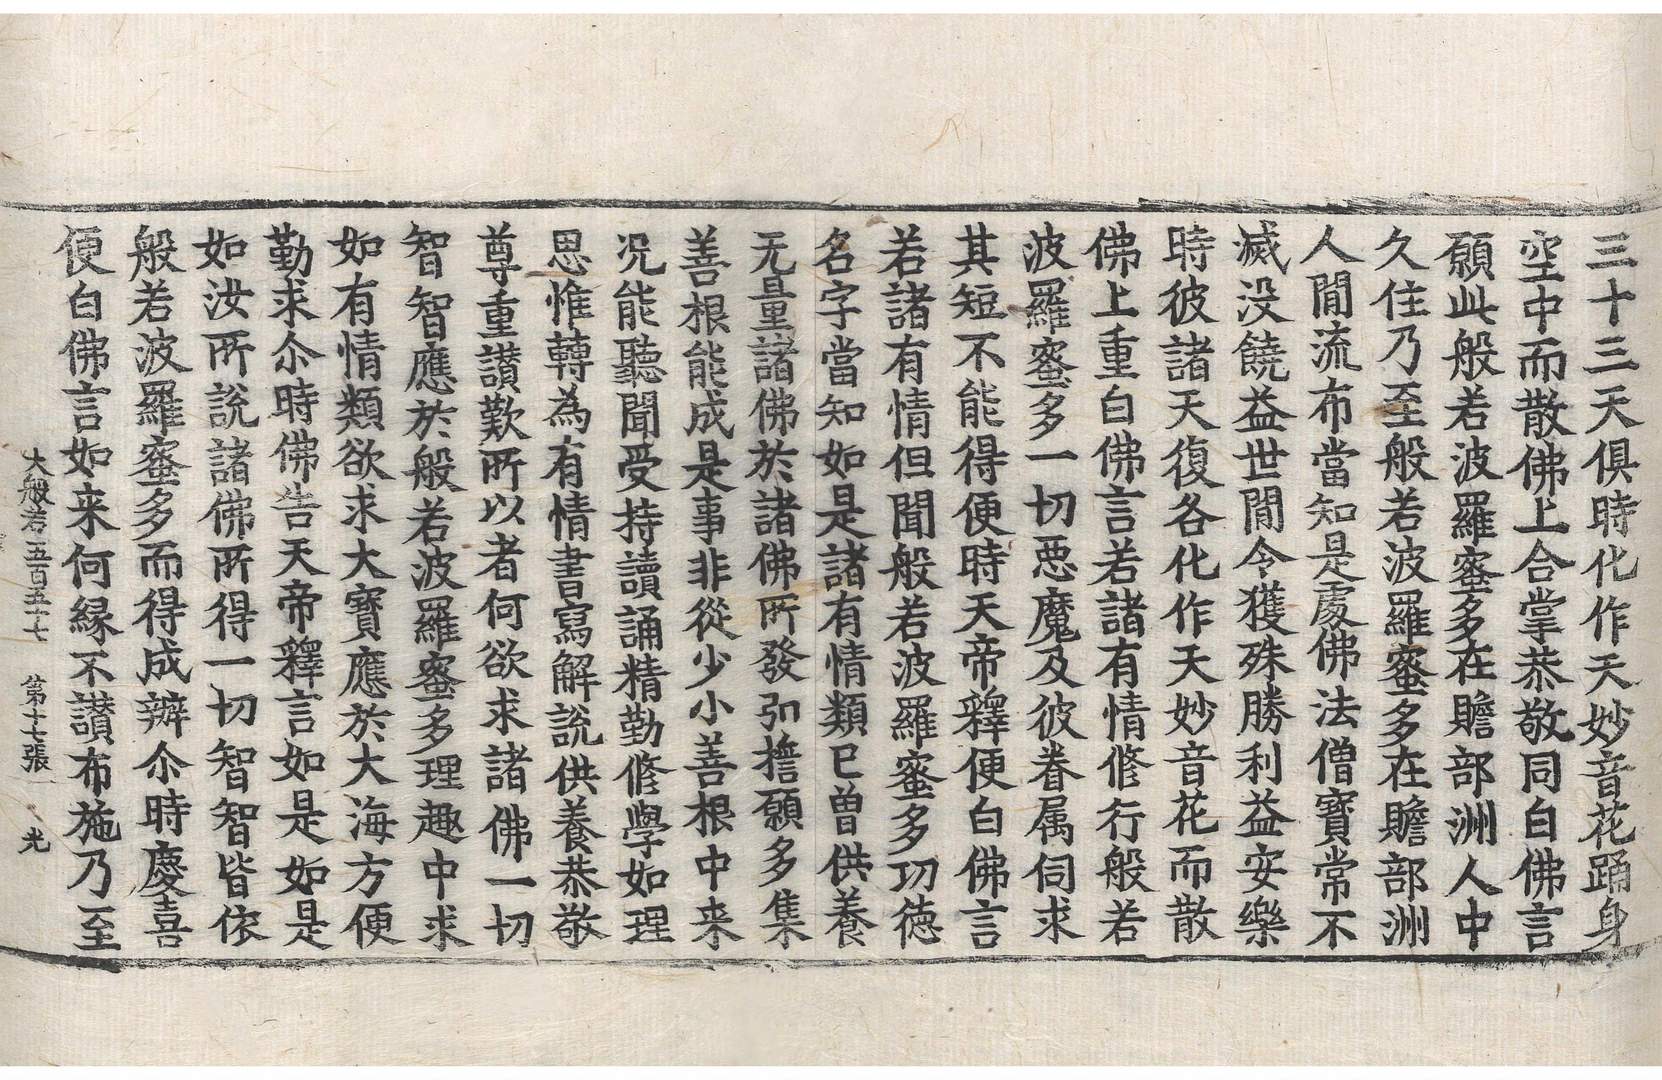 三十三天俱時化作天妙音花踊身
空中而散佛上合掌恭敬同白佛言
願此般若波羅蜜多在贍部洲人中
久住乃至般若波羅蜜多在贍部洲
人閒流布當知是處佛法僧寶常不
滅没饒益世閒令獲殊勝利益安樂
時彼諸天復各化作天妙音花而散
佛上重白佛言若諸有情修行般若
波羅蜜多一切惡魔及彼眷属伺求
其短不能得便時天帝釋便白佛言
若諸有情但聞般若波羅蜜多功徳
名字當知如是諸有情類已曾供養
无量諸佛於諸佛所發弘擔願多集
善根能成是事非從少小善根中来
况能聽聞受持讀誦精勤修學如理
思惟轉為有情書寫解說供養恭敬
尊重讃歎所以者何欲求諸佛一切
智智應於般若波羅蜜多理趣中求
如有情類欲求大寶應於大海方便
勤求尒時佛告天帝釋言如是如是
如汝所說諸佛所得一切智智皆依
般若波羅蜜多而得成辦尒時慶喜
便白佛言如来何縁不讃布施乃至
大般若五百五十七 第十七張 光